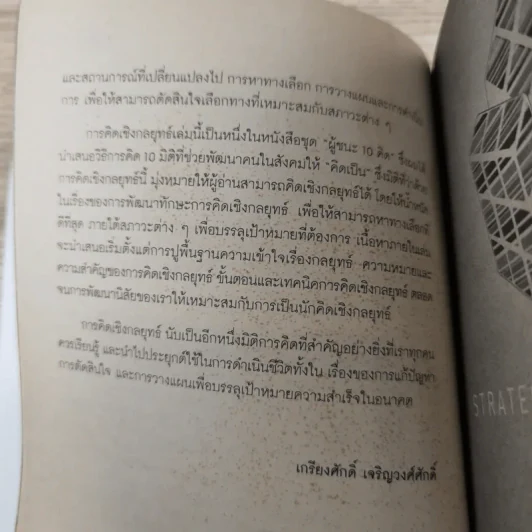 และสถานการณ์ที่เปลี่ยนแปลงไป การหาทางเลือก การวางแผนและการดำเนิน
การ เพื่อให้สามารถตัดสินใจเลือกทางที่เหมาะสมกับสภาวะต่าง ๆ
การคิดเชิงกลยุทธ์เล่มนี้เป็นหนึ่งในหนังสือชุด "ผู้ชนะ 10 คิด" ซึ่งผมได้
นำเสนอวิธีการคิด 10 มิติที่ช่วยพัฒนาคนในสังคมให้ "คิดเป็น" ซึ่งมิติที่ว่าด้วย
การคิดเชิงกลยุทธ์นี้ มุ่งหมายให้ผู้อ่านสามารถคิดเชิงกลยุทธ์ได้ โดยให้น้ำหนัก
ในเรื่องของการพัฒนาทักษะการคิดเชิงกลยุทธ์ เพื่อให้สามารถหาทางเลือกที่
ดีที่สุด ภายใต้สภาวะต่าง ๆ เพื่อบรรลุเป้าหมายที่ต้องการ เนื้อหาภายในเล่ม
จะนำเสนอเริ่มตั้งแต่การปูพื้นฐานความเข้าใจเรื่องกลยุทธ์ ความหมายและ
ความสำคัญของการคิดเชิงกลยุทธ์ ขั้นตอนและเทคนิคการคิดเชิงกลยุทธ์ ตลอด
จนการพัฒนานิสัยของเราให้เหมาะสมกับการเป็นนักคิดเชิงกลยุทธ์
การคิดเชิงกลยุทธ์ นับเป็นอีกหนึ่งมิติการคิดที่สำคัญอย่างยิ่งที่เราทุกคน
ควรเรียนรู้ และนำไปประยุกต์ใช้ในการดำเนินชีวิตทั้งใน เรื่องของการแก้ปัญหา
การตัดสินใจ และการวางแผนเพื่อบรรลุเป้าหมายความสำเร็จในอนาคต
เกรียงศักดิ์ เจริญวงศ์ศักดิ์
STRATE